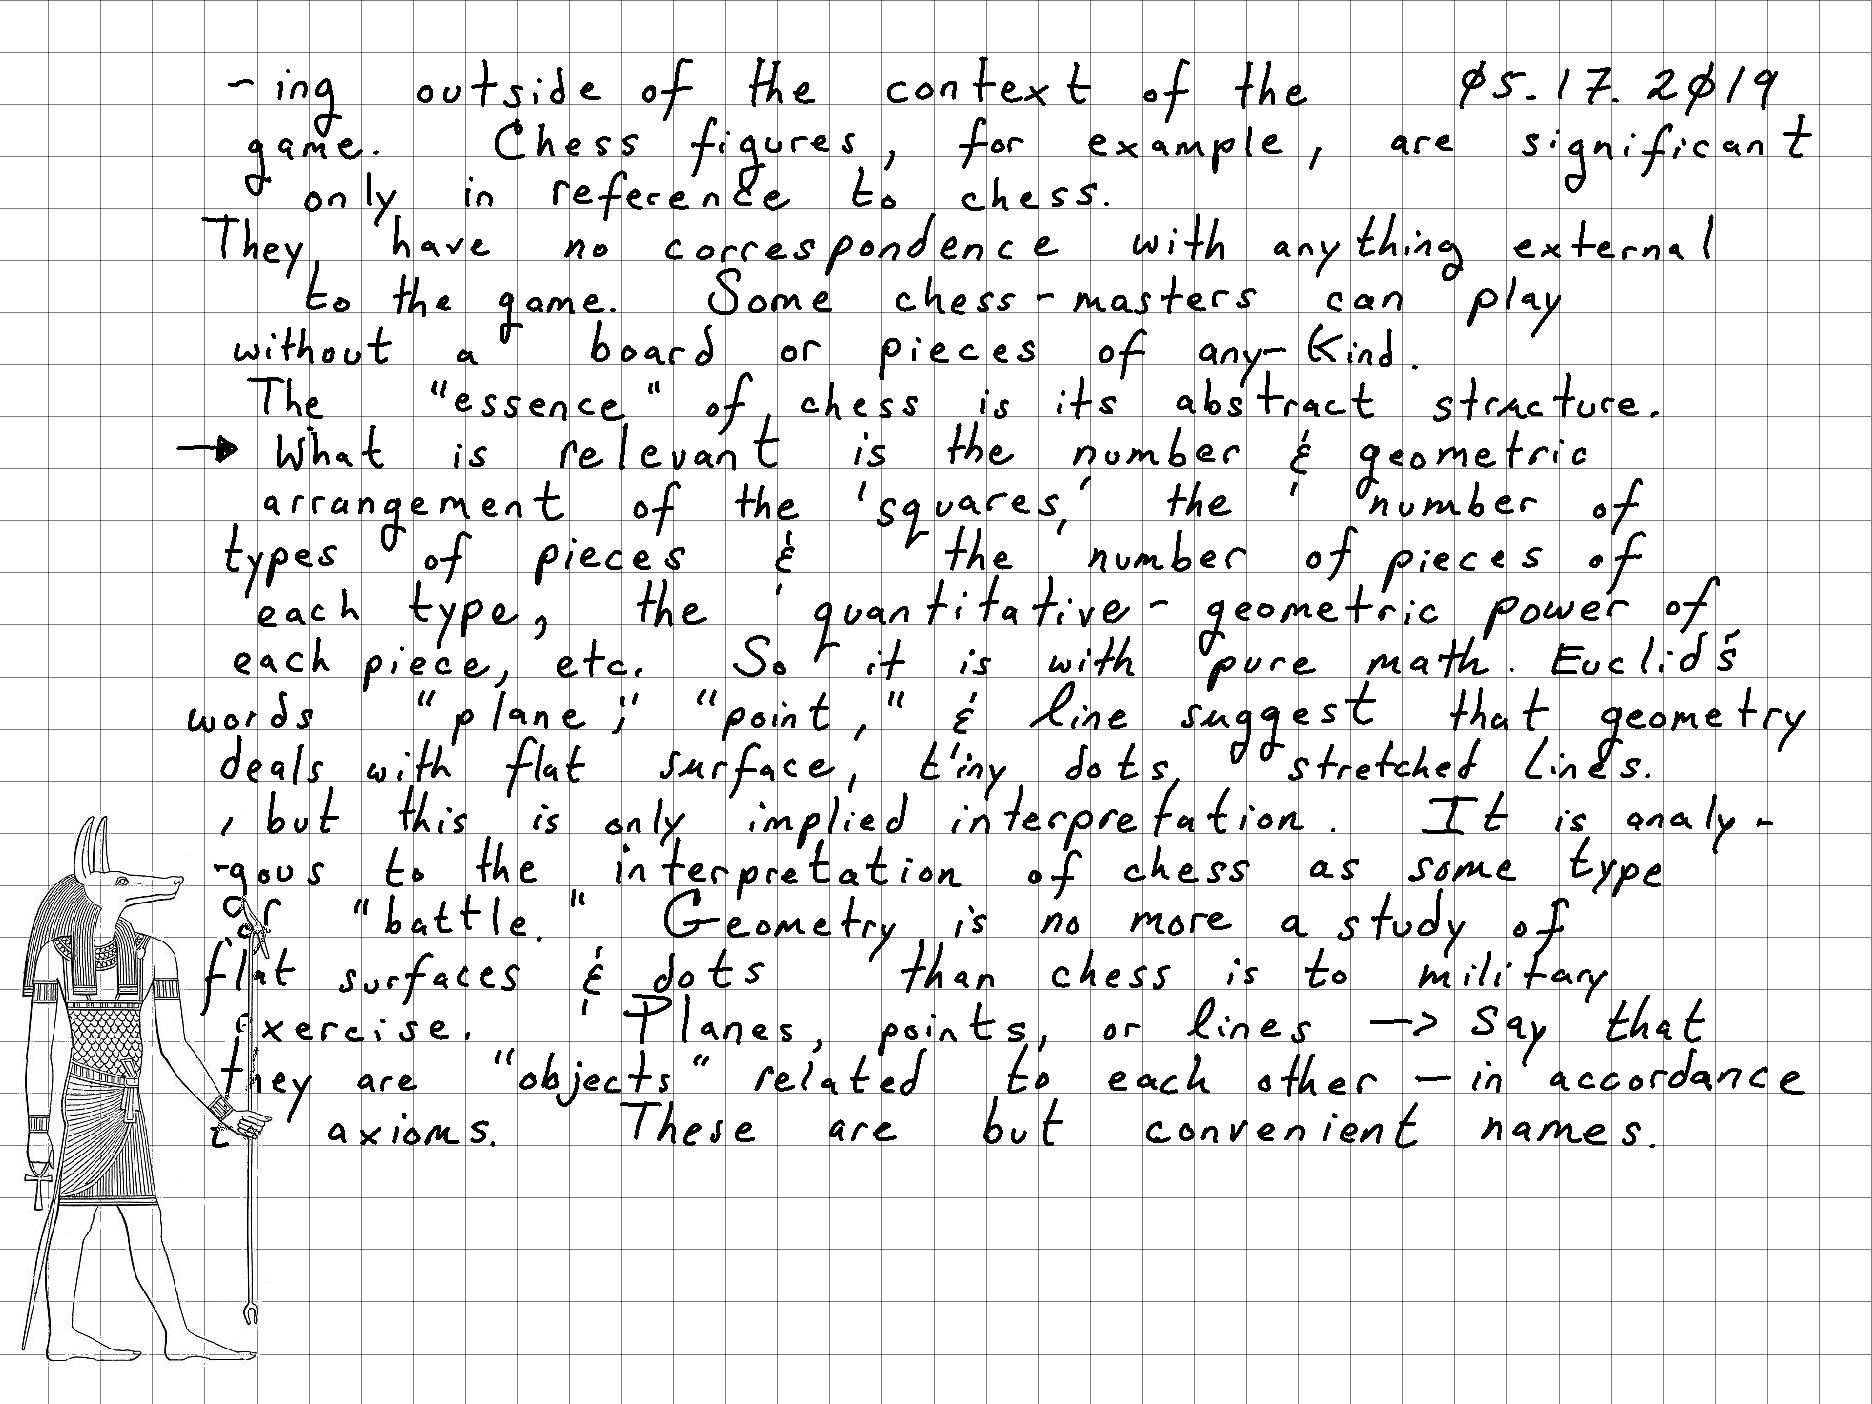 -ing outside of the context of the 05.17.2019
game. Chess figures, for example, are significant
only in reference to chess.
They have no correspondence with anything external
to the game. Some chess-masters can play
without a board or pieces of any-Kind.
The "essence" of chess is its abstract structure.
→ What is relevant is the number & geometric
arrangement of the 'squares,' the number of
types of pieces & the number of pieces of
each type, the quantitative-geometric power of
each piece, etc. So it is with pure math. Euclid's
words "plane," "point," & line suggest that geometry
deals with flat surface, tiny dots, stretched lines.
, but this is only implied interpretation. It is analy-
-gous to the interpretation of chess as some type
or "battle." Geometry is no more a study of
flat surfaces & dots than chess is to military
exercise. Planes, points, or lines —> Say that
they are "objects" related to each other — in accordance
axioms. These are but convenient names.